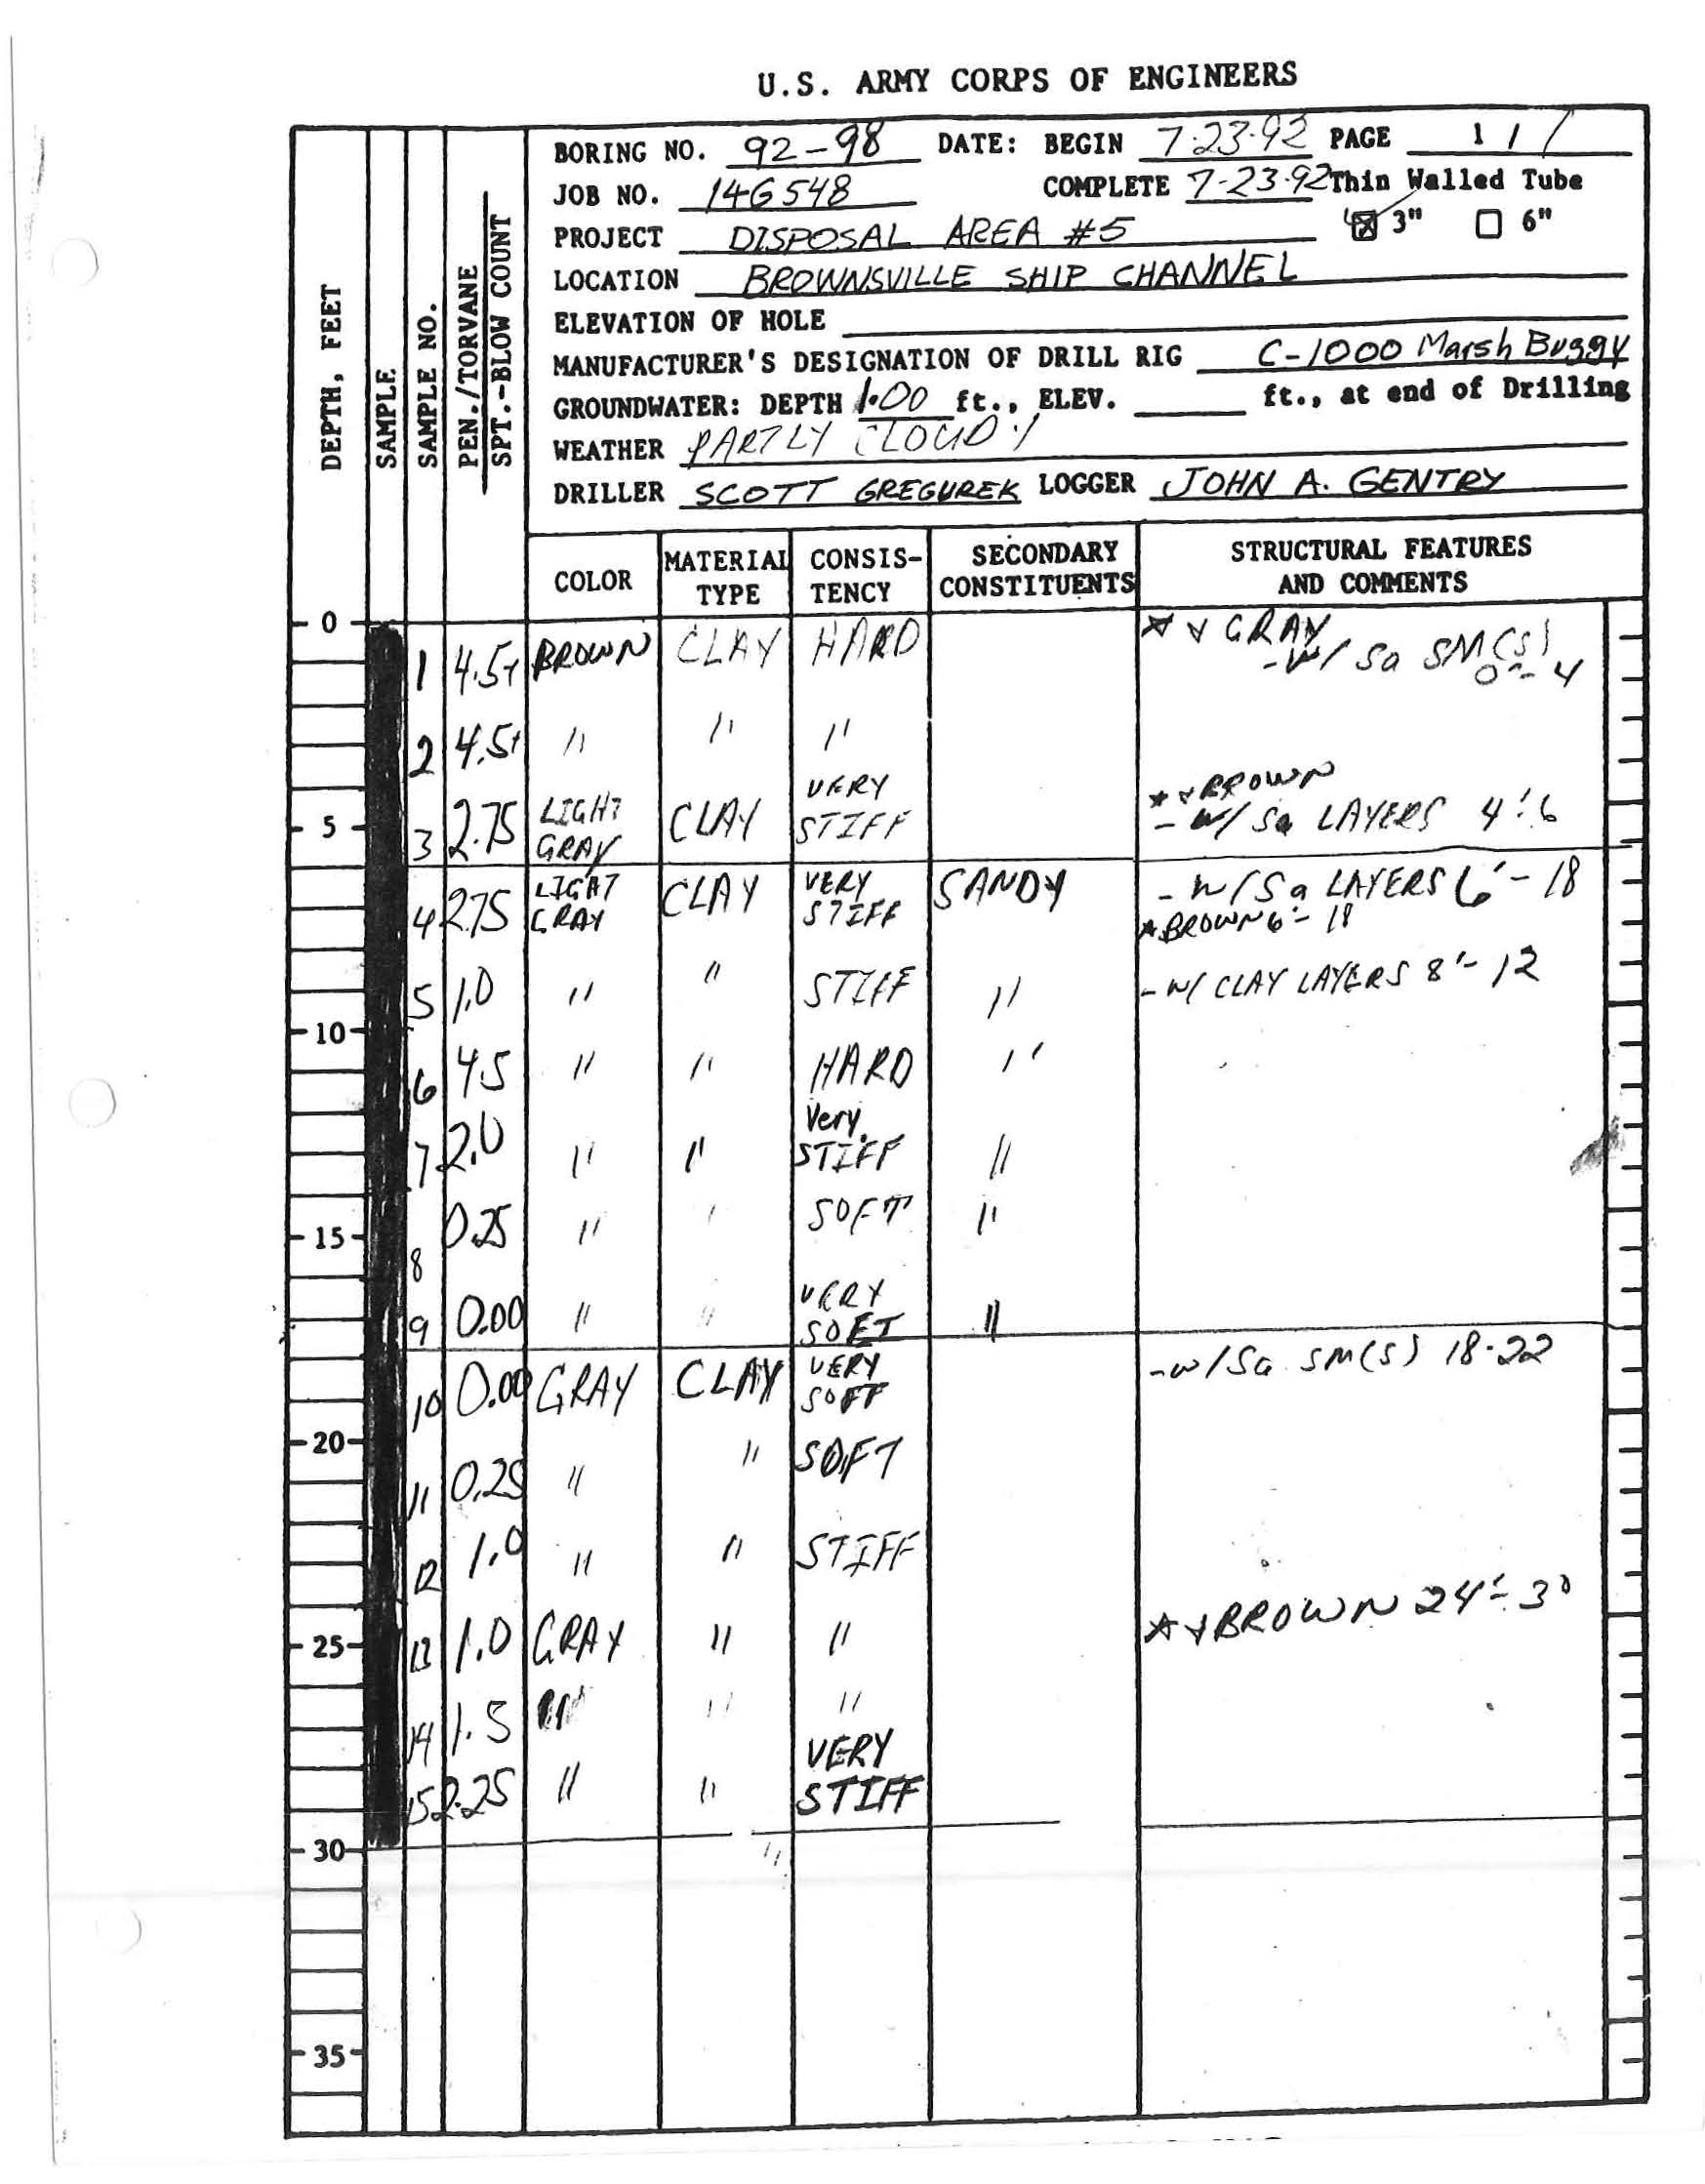 U.S. ARMY CORPS OF ENGINEERS
BORING NO. 92-98 DATE: BEGIN 7-23-92 PAGE 1 / 1
JOB NO. 14G548 COMPLETE 7-23-92 Thin Walled Tube
PROJECT DISPOSAL AREA #5 3" 6"
LOCATION BROWNSVILLE SHIP CHANNEL
ELEVATION OF HOLE
MANUFACTURER'S DESIGNATION OF DRILL RIG C-1000 Marsh Buggy
GROUNDWATER: DEPTH 1.00 ft., ELEV. ft., at end of Drilling
WEATHER PARTLY CLOUDY
DRILLER SCOTT GREGUREK LOGGER JOHN A. GENTRY
DEPTH, FEET
SAMPLE
SAMPLE NO.
PEN./TORVANE
SPT.-BLOW COUNT
COLOR MATERIAL TYPE CONSIS-TENCY SECONDARY CONSTITUENTS STRUCTURAL FEATURES AND COMMENTS
0
1 4.5+ BROWN CLAY HARD GRAY
-W/ Sa SM(S) 0'-4
2 4.5+ " " "
5 3 2.75 LIGHT GRAY CLAY VERY STIFF BROWN
-W/ Sa LAYERS 4'-6
4 2.75 LIGHT GRAY CLAY VERY STIFF SANDY -W/Sa LAYERS 6'-18
*BROWN 6'-18
5 1.0 " " STIFF " -W/ CLAY LAYERS 8'-12
10
6 4.5 " " HARD "
7 2.0 " " Very STIFF "
15 8 0.25 " " SOFT "
9 0.00 " " VERY SOFT "
10 0.00 GRAY CLAY VERY SOFT -W/Sa SM(S) 18-22
20
11 0.25 " " SOFT
12 1.0 " " STIFF
25 13 1.0 GRAY " " BROWN 24'-30
14 1.5 " " "
15 2.25 " " VERY STIFF
30
"
35